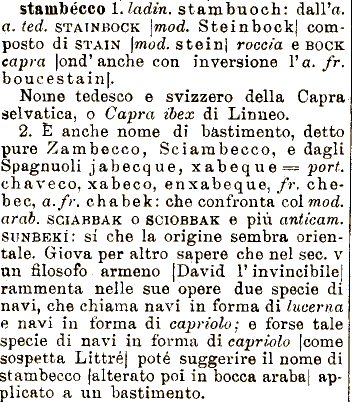 stambécco 1. ladin. stambuoch: dall'a.
a. ted. STAINBOCK |mod. Steinbock| com-
posto di STAIN |mod. stein| roccia e BOCK
capra |ond'anche con inversione l'a. fr.
boucestain|.
Nome tedesco e svizzero della Capra
selvatica, o Capra ibex di Linneo.
2. È anche nome di bàstimento, detto
pure Zambecco, Sciambecco, e dagli
Spagnuoli jabecque, xabeque = port.
chaveco, xabeco, enxabeque, fr. che-
bec, a. fr. chabek: che confronta col mod.
arab. SCIABBAK o SCIOBBAK e più anticam.
SUNBEKÍ: sì che la origine sembra orien-
tale. Giova per altro sapere che nel sec. V
un filosofo armeno |David l'invincibile|
rammenta nelle sue opere due specie di
navi, che chiama navi in forma di lucerna
e navi in forma di capriolo; e forse tale
specie di navi in forma di capriolo |come
sospetta Littré| poté suggerire il nome di
stambecco |alterato poi in bocca araba| ap-
plicato a un bastimento.